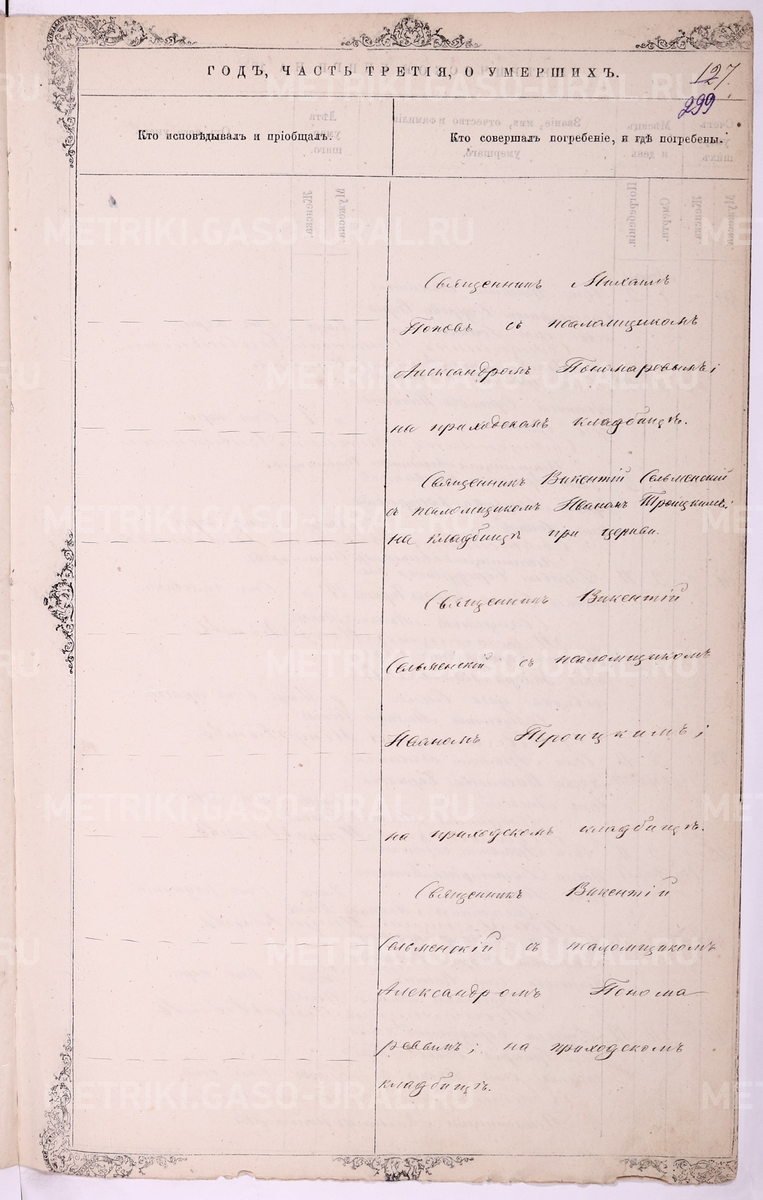 ГОДЪ, ЧАСТЬ ТРЕТІЯ, О УМЕРШИХЪ.
127.
299
Кто исповѣдывалъ и пріобщалъ.
Кто совершалъ погребеніе, и гдѣ погребены.
Священникъ Михаилъ
Поповъ съ псаломщикомъ
Александромъ Пономаревымъ;
на приходскомъ кладбищѣ.
Священникъ Викентій Сельменскій
съ псаломщикомъ Иваномъ Троицкимъ;
на кладбищѣ при церкви.
Священникъ Викентій
Сельменскій съ псаломщикомъ
Иваномъ Троицкимъ;
на приходскомъ кладбищѣ.
Священникъ Викентій
Сельменскій съ псаломщикомъ
Александромъ Понома
ревымъ; на приходскомъ
кладбищѣ.
METRIKI.GASO-URAL.RU